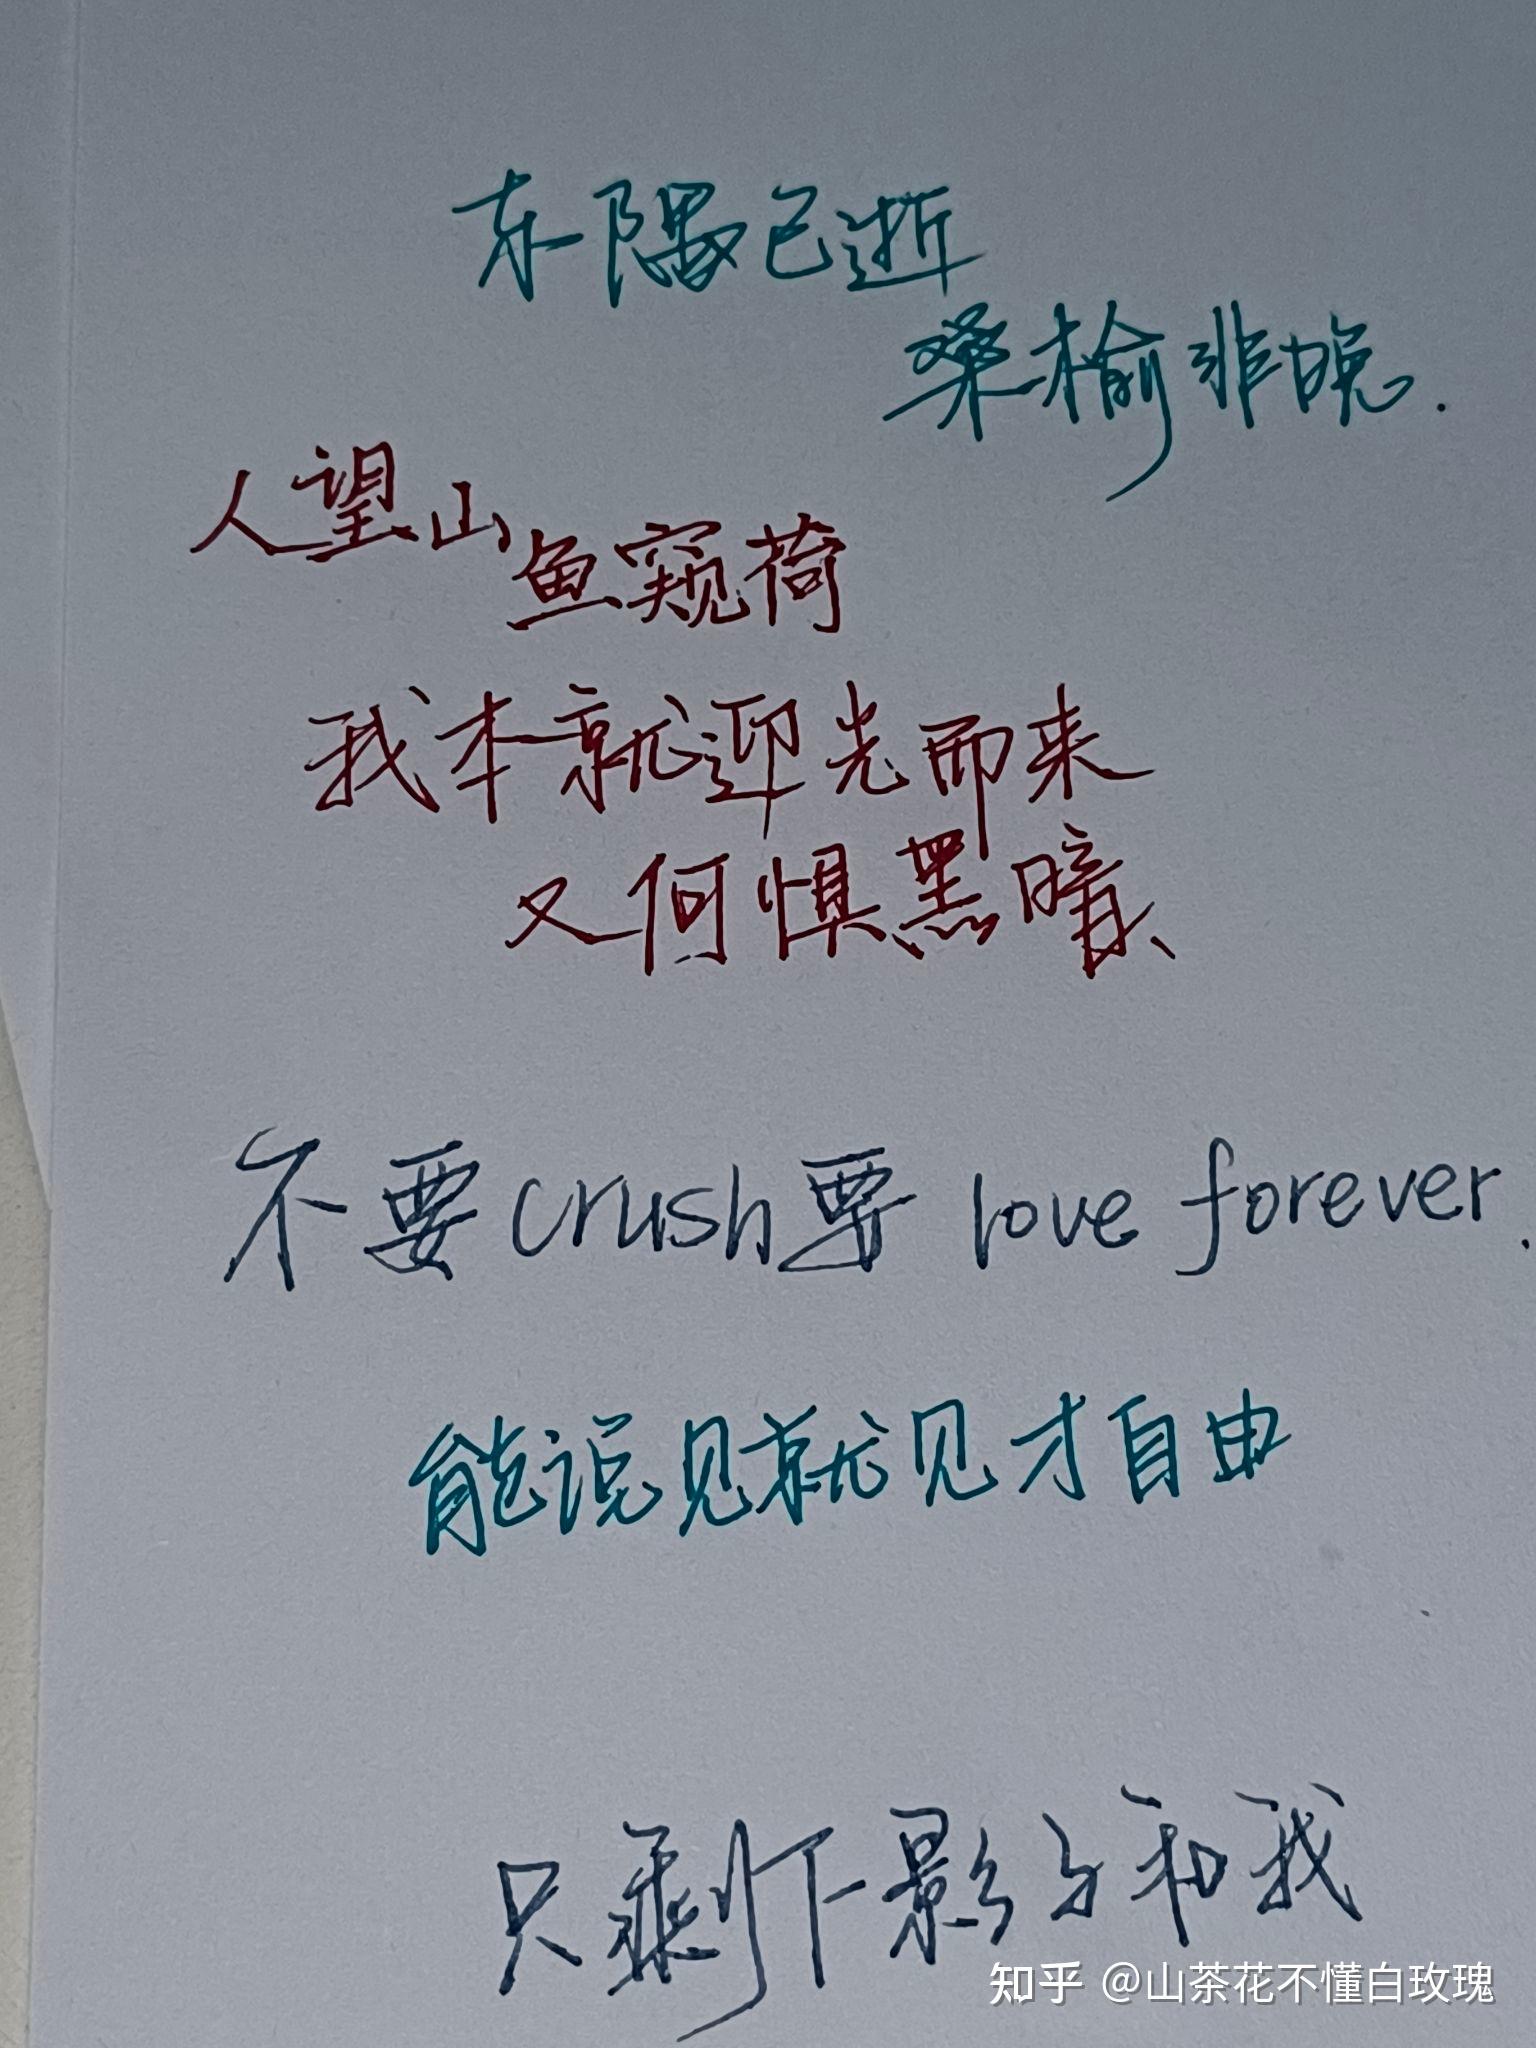 东隅已逝
桑榆非晚.
人望山
鱼窥荷
我本就迎光而来
又何惧黑暗、
不要crush要 love forever.
能说见就见才自由
只剩下影子和我
知乎 @山茶花不懂白玫瑰